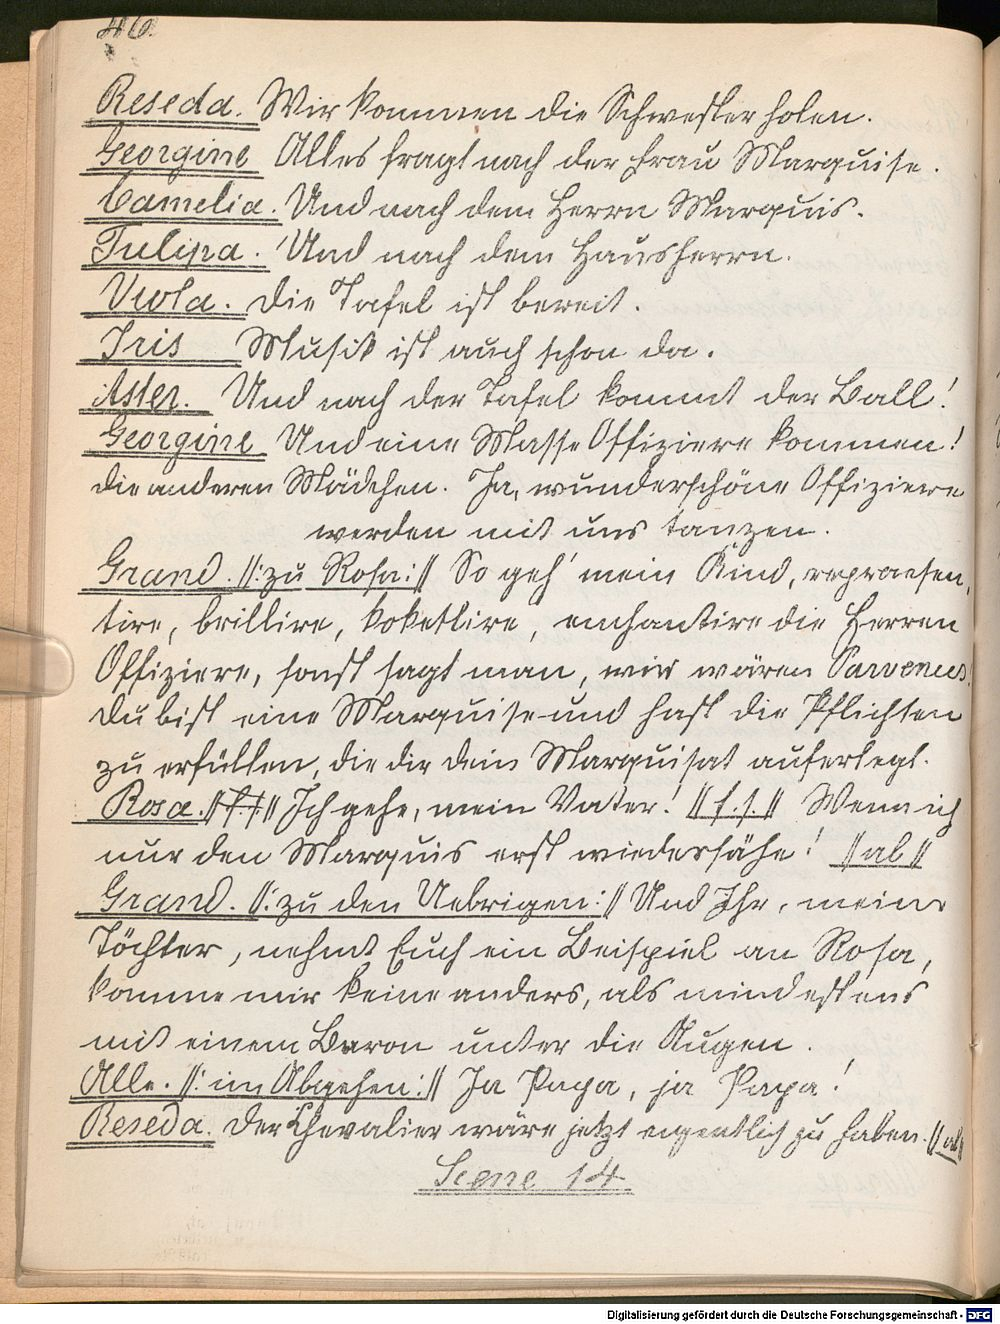 46.
Reseda. Wir kommen die Schwester holen.
Georgine Alles fragt nach der Frau Marquise.
Camelia. Und nach dem Herrn Marquis.
Tulipa. Und nach dem Hausherrn.
Viola. Die Tafel ist bereit.
Iris Musik ist auch schon da.
Aster. Und nach der Tafel kommt der Ball!
Georgine Und eine Masse Offiziere kommen!
die anderen Mädchen. Ja, wunderschöne Offiziere
werden mit uns tanzen.
Grand. //:zu Rosa:// So geh' mein Kind, repraesen,
tire, brillire, kokettire, enchantire die Herren
Offiziere, sonst sagt man, wir wären Parvenues!
Du bist eine Marquise und hast die Pflichten
zu erfüllen, die dir dein Marquisat auferlegt.
Rosa. // f. f. // Ich gehe, mein Vater! // f. f. // Wenn ich
nur den Marquis erst wiedersähe! // ab //
Grand. //: zu den Uebrigen:// Und Ihr, meine
Töchter, nehmt Euch ein Beispiel an Rosa,
komme mir keine anders, als mindestens
mit einem Baron unter die Augen.
Alle. //: im Abgehen:// Ja Papa, ja Papa!
Reseda. Der Chevalier wäre jetzt eigentlich zu haben. // ab //
Scene 14
Digitalisierung gefördert durch die Deutsche Forschungsgemeinschaft - DFG